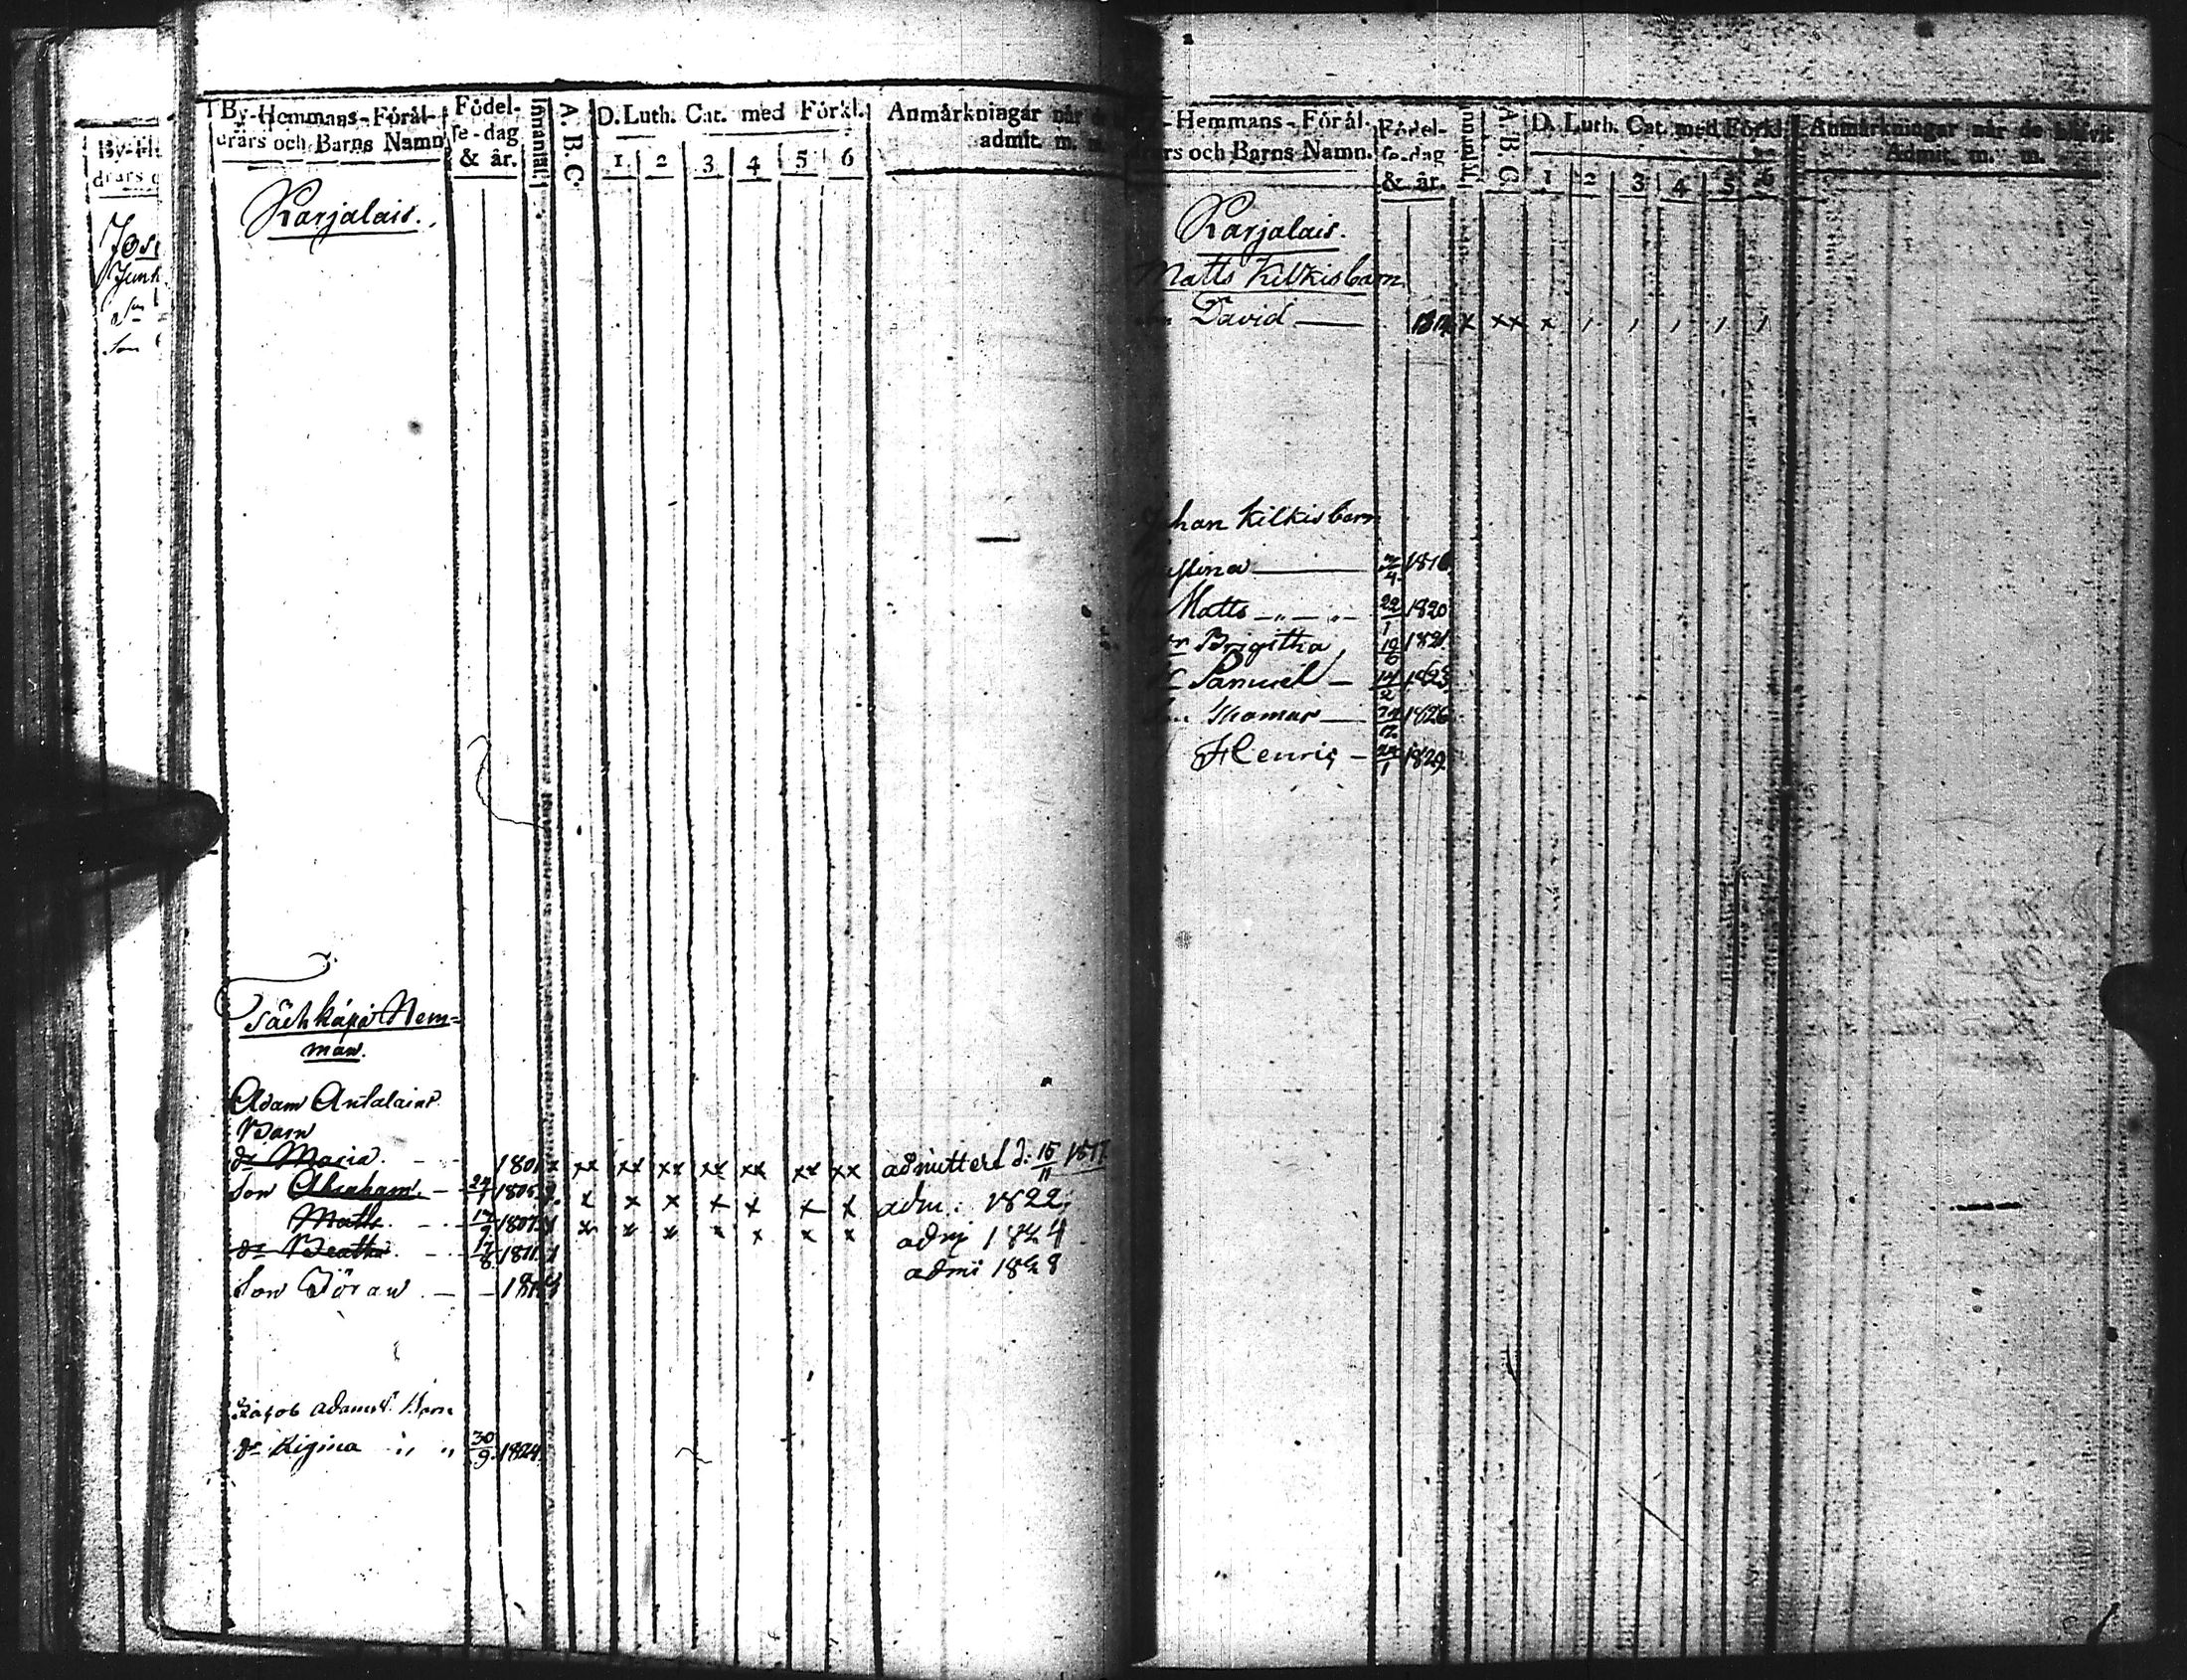 By-He
drars o
Jose
Junk
Son
By-Hemmans-Förål-
drars och Barns Namn
Födel-
se-dag
& år.
Innanläs.
A. B. C.
D. Luth. Cat. med Förkl.
1. 2 3 4 5 6
Anmärkningar när d
admit. m. m.
Karjalais.
Hem=
man.
Adam Antalains
Barn
dr Maria. - - 1801 x xx xx xx xx xx xx xx admitterd d. 15/11 1817
Son Abraham - 24/1 1805 x x x x x x x adm: 1822
Matts - - 17/9 1807 x x x x x x x adm 1824
dr Beatha - - 17/8 1811 admi 1828
Son Jöran - - 1814
Jacob Adamss. Barn
dr Regina " " 30/9 1824
-Hemmans-Förål.
rs och Barns Namn.
Födel-
se-dag
& år.
A. B. C.
D. Luth. Cat. med Förkl.
1 2 3 4 5 6
Anmärkningar när de blifvit
Admit. m. m.
Karjalais.
Matts Kilkis barn
David — x xx x / / / / /
Johan Kilkis barn
stina — 1818
Matts - " - " - 22/1 1820
dr Brigitha, 19/6 1821
Samuel — 14/2 1823
Thomas — 1826
Henric - 1829